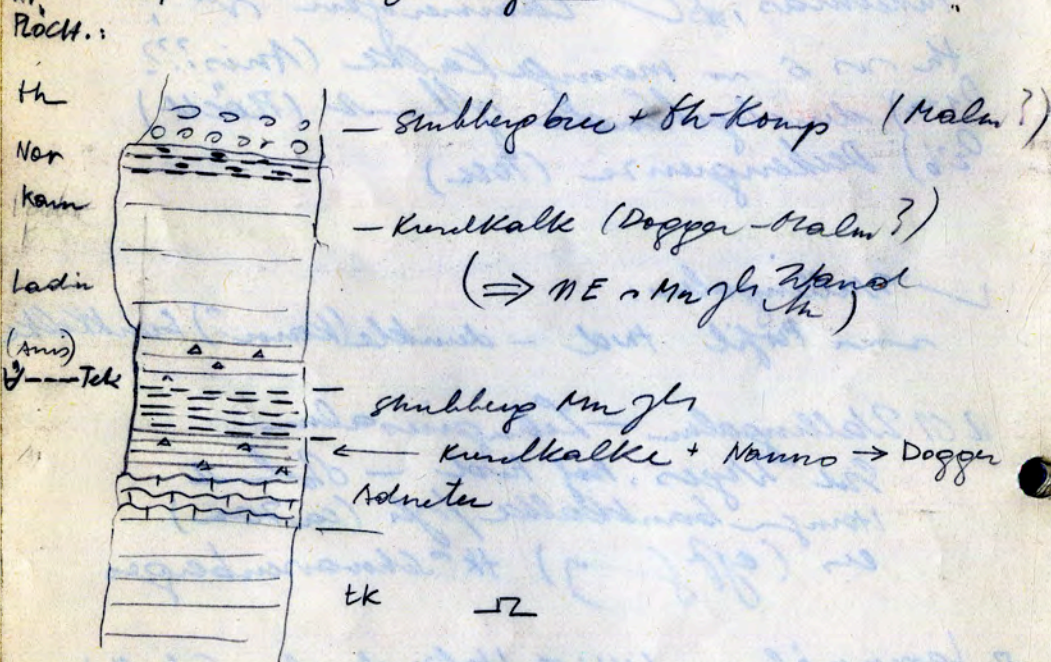 Plöch.:
th
Nor
Karn
Ladin
(Anis)
----Tek
— Strubbergbrec + th-Komp (Malm?)
— Kieselkalk (Dogger–Malm?)
(⇒ NE
Strubberg
← Kieselkalke + Nanno → Dogger
Adneter
tk